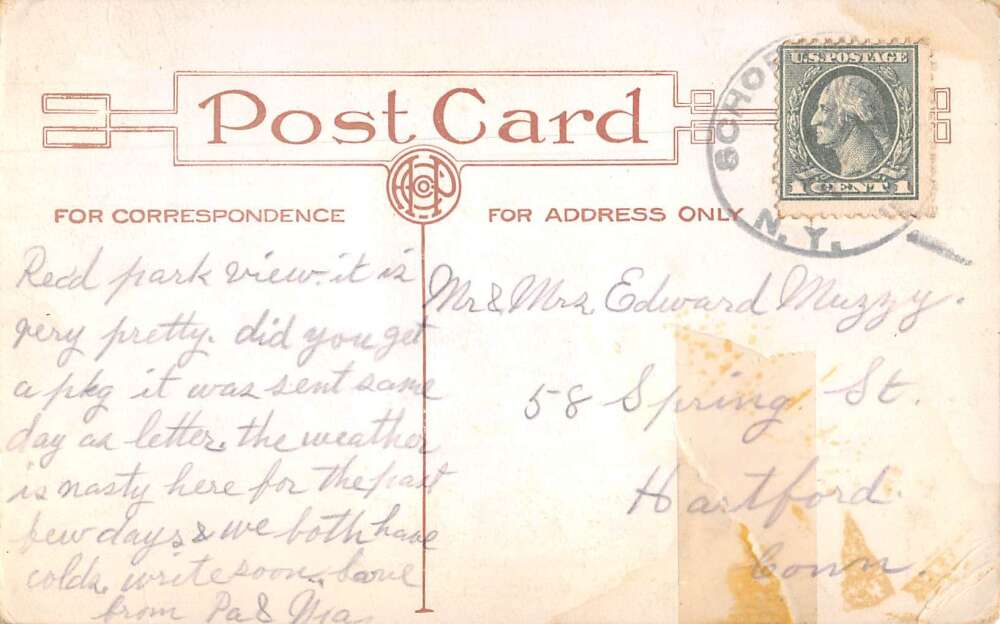 Post Card
FOR CORRESPONDENCE
FOR ADDRESS ONLY
SCHO
N.Y.
U.S. POSTAGE
1 CENT 1
Rec'd park view. it is
very pretty. did you get
a pkg it was sent same
day as letter. the weather
is nasty here for the past
few days & we both have
colds. write soon. Love
from Pa & Ma
Mr & Mrs Edward Muzzy.
58 Spring. St.
Hartford.
Conn.